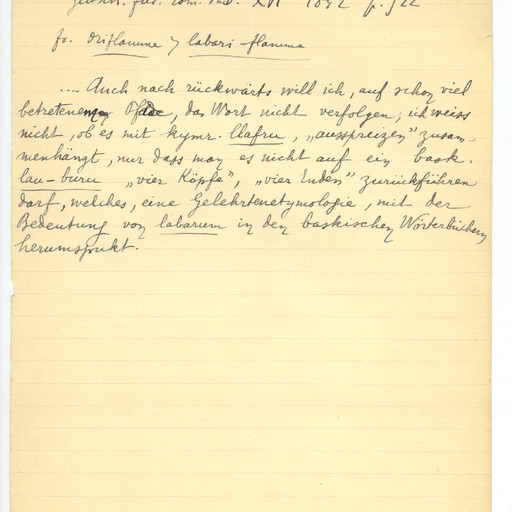 rom. XVI 1892 p. 522
fr. oriflamme > labari-flamma
.... Auch nach rückwärts will ich, auf schon viel
betretenem Pfade, das Wort nicht verfolgen; ich weiss
nicht, ob es mit kymr. llafru, „ausspreizen” zusam-
menhängt, nur dass man es nicht auf ein bask.
lau-buru „vier Köpfe”, „vier Enden” zurückführen
darf, welches, eine Gelehrtenetymologie, mit der
Bedeutung von labarum in den baskischen Wörterbüchern
herumspukt.